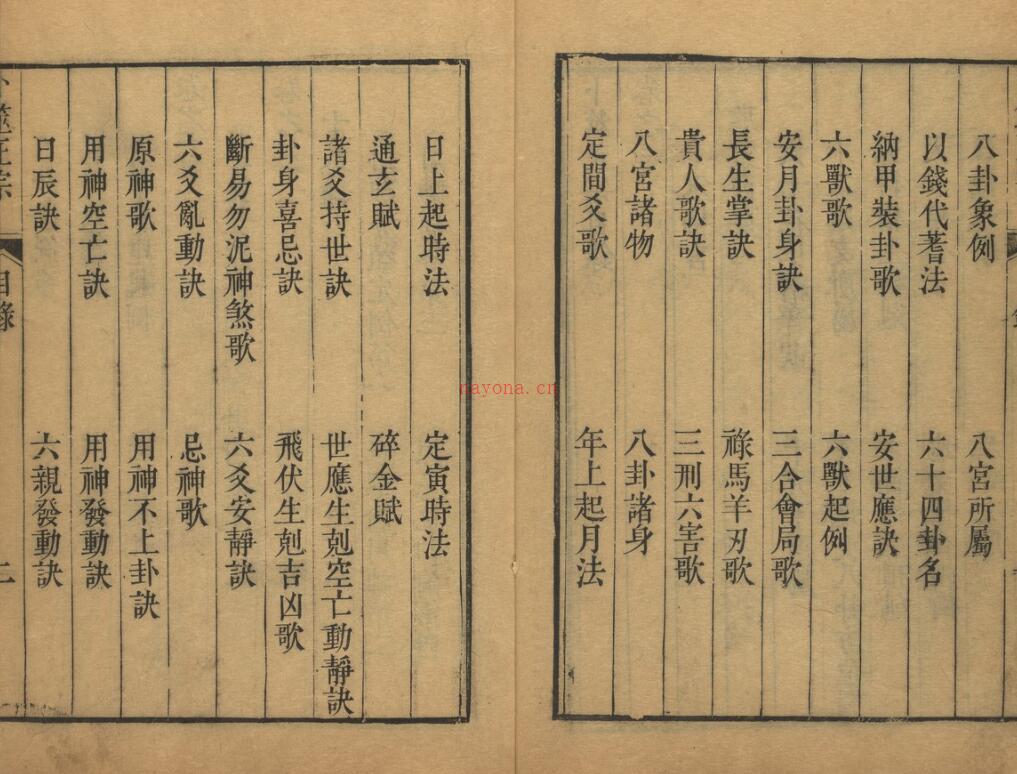 八卦象例　八宮所屬
以錢代蓍法　六十四卦名
納甲裝卦歌　安世應訣
六獸歌　六獸起例
安月卦身訣　三合會局歌
長生掌訣　祿馬羊刃歌
貴人歌訣　三刑六害歌
八宮諸物　八卦諸身
定間爻歌　年上起月法
日上起時法　定寅時法
通玄賦　碎金賦
諸爻持世訣　世應生剋空亡動靜訣
卦身喜忌訣　飛伏生剋吉凶歌
斷易勿泥神煞歌　六爻安靜訣
六爻亂動訣　忌神歌
原神歌　用神不上卦訣
用神空亡訣　用神發動訣
日辰訣　六親發動訣
卜筮正宗　目錄　二
nayona.cn